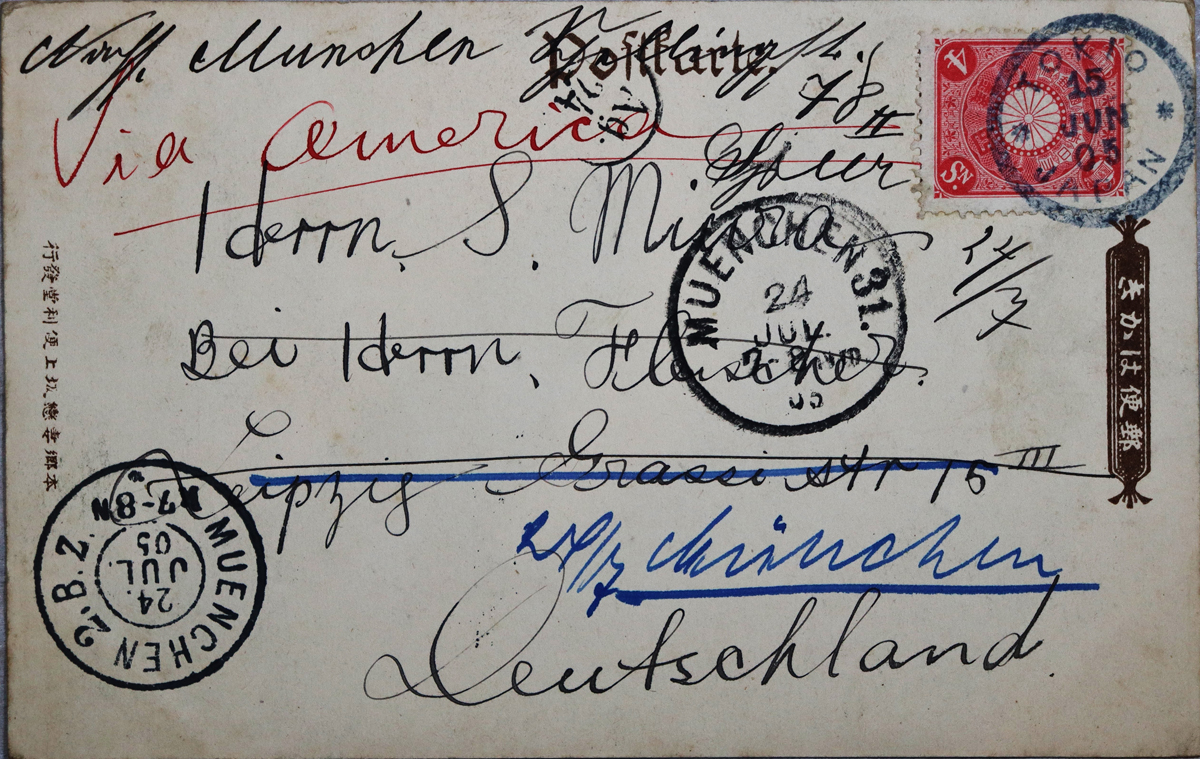 Nach München
Postkarte.
78 II
Via America
Herrn, S.
24/7
Bei Herrn,
Leipzig Grassi str 15 III
24/7 München
Deutschland
4
Sn.
TOKIO
15
JUN
05
JAPAN
MUENCHEN 31.
24
JUL.
05
MUENCHEN 2.B.Z.
24
JUL.
05
7-8 N
きかは便郵
行發堂利便上坂